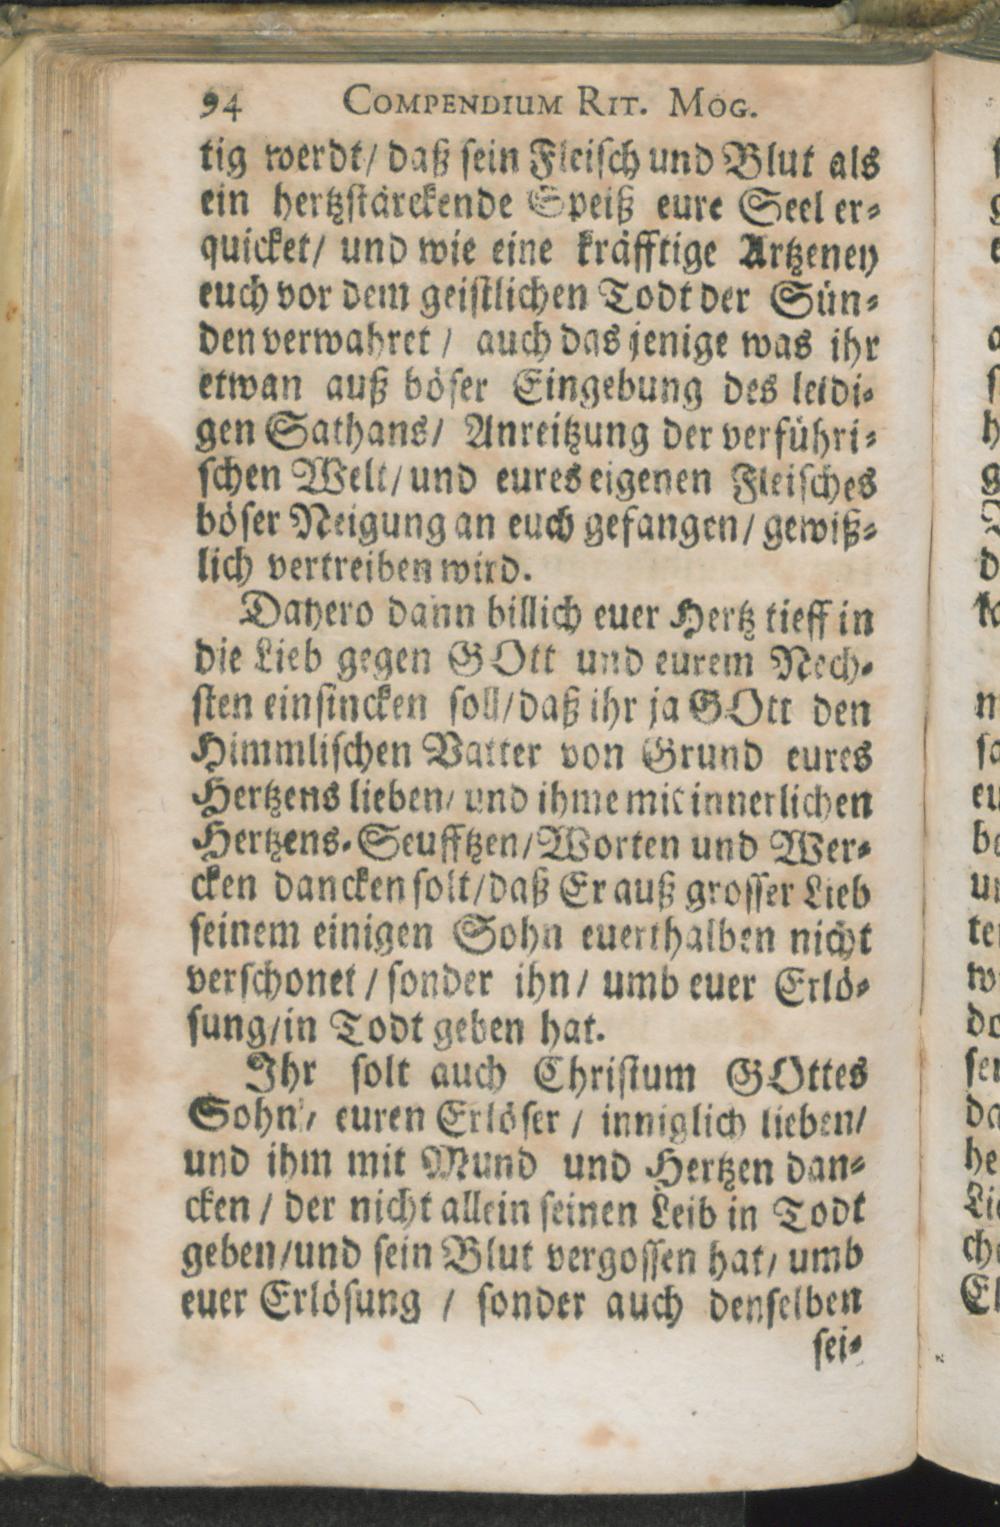 94 COMPENDIUM RIT. MOG.
tig werdt/ daß sein Fleisch und Blut als
ein hertzstärckende Speiß eure Seel er-
quicket/ und wie eine kräfftige Artzeney
euch vor dem geistlichen Todt der Sün-
den verwahret / auch das jenige was ihr
etwan auß böser Eingebung des leidi-
gen Sathans/ Anreitzung der verführi-
schen Welt/ und eures eigenen Fleisches
böser Neigung an euch gefangen/ gewiß-
lich vertreiben wird.
Dahero dann billich euer Hertz tieff in
die Lieb gegen GOtt und eurem Nech-
sten einsincken soll/ daß ihr ja GOtt den
Himmlischen Vatter von Grund eures
Hertzens lieben/ und ihme mit innerlichen
Hertzens-Seufftzen/ Worten und Wer-
cken dancken solt/ daß Er auß grosser Lieb
seinem einigen Sohn euerthalben nicht
verschonet / sonder ihn / umb euer Erlö-
sung/ in Todt geben hat.
Ihr solt auch Christum GOttes
Sohn / euren Erlöser / inniglich lieben/
und ihm mit Mund und Hertzen dan-
cken / der nicht allein seinen Leib in Todt
geben/ und sein Blut vergossen hat/ umb
euer Erlösung / sonder auch denselben
sei-